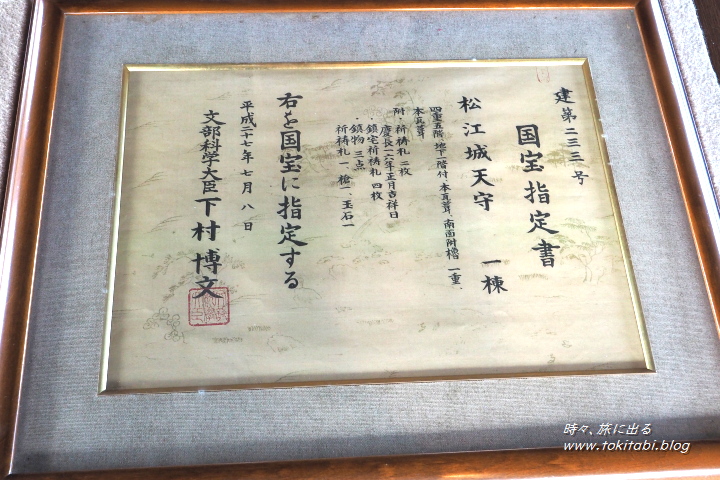 建第二三三号
国宝指定書
松江城天守　一棟
四重五階、地下一階付、本瓦葺、南面附櫓　一重、
本瓦葺
附・祈祷札 二枚
慶長一六年正月吉祥日
・鎮宅祈祷札 四枚
・鎮物 三点
祈祷札一、槍一、玉石一
右を国宝に指定する
平成二十七年七月八日
文部科学大臣 下村博文
時々、旅に出る
www.tokitabi.blog